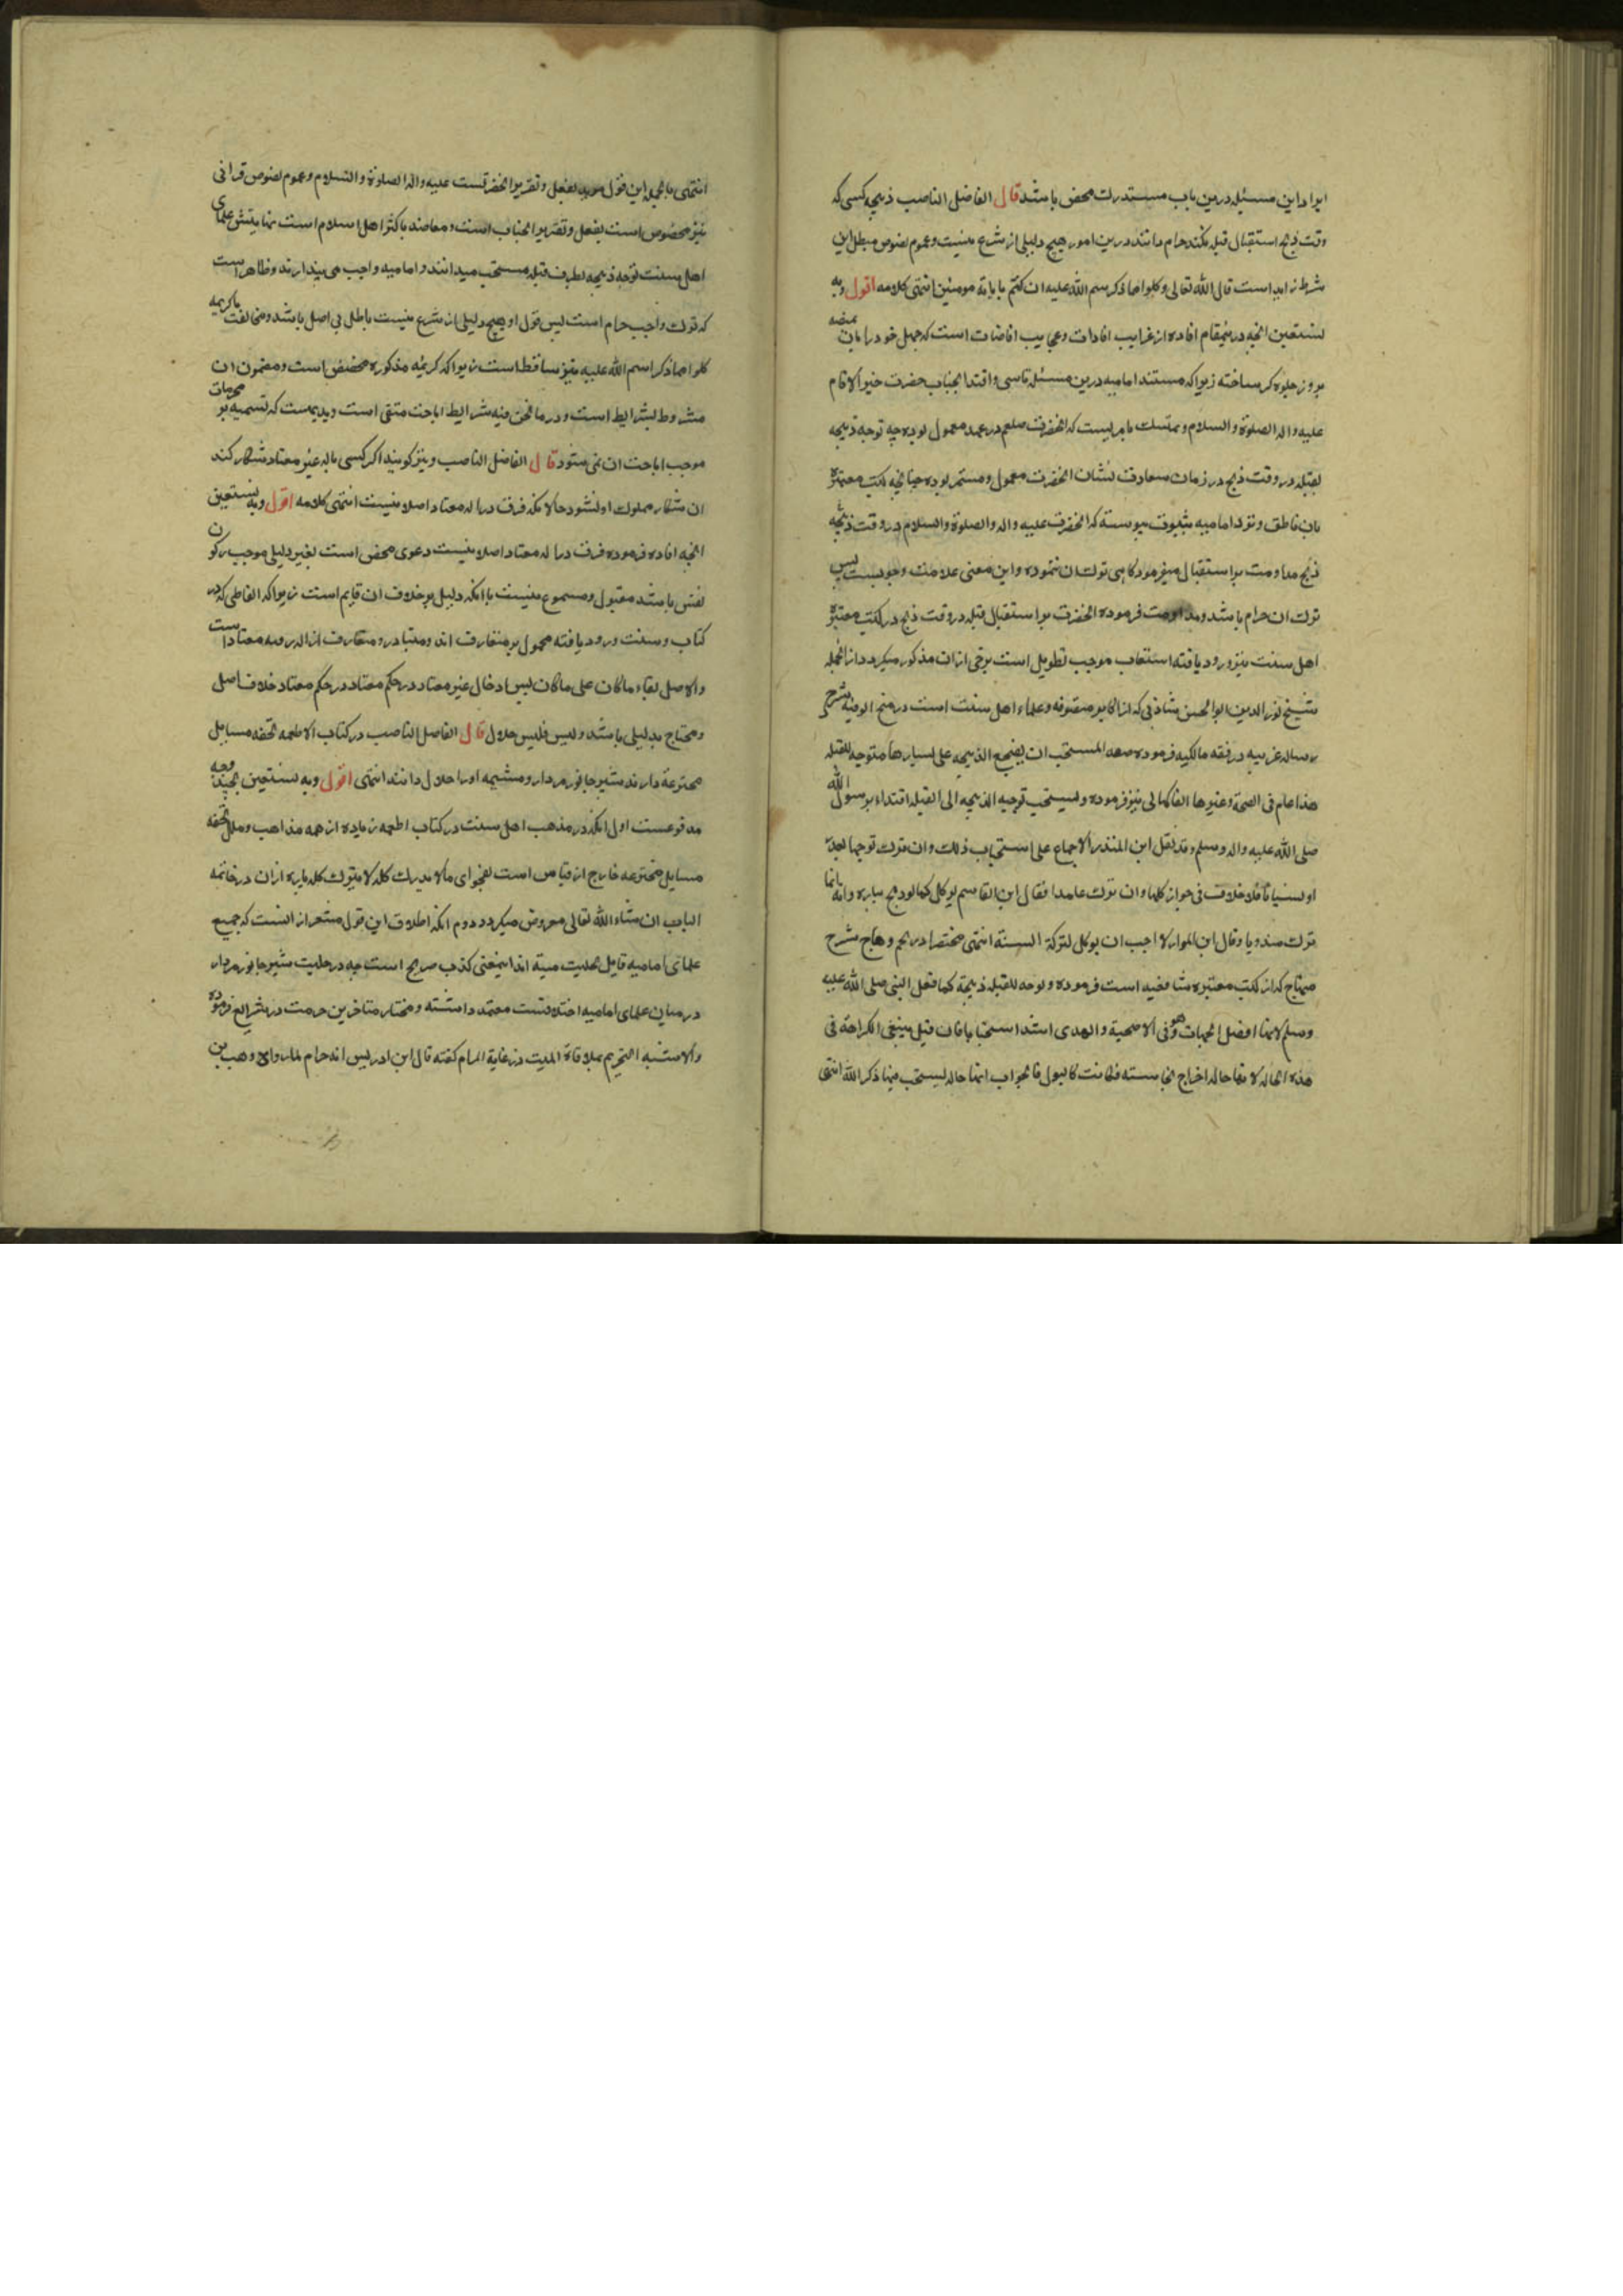 ایراد این مسئله درین باب مستدرك محض باشد قال الفاضل الناصب ذبیحه کسی که
وقت ذبح استقبال قبله نکند حرام دانند درین امور هیچ دلیلی از شرع نیست و عموم نصوص مبطل این
شرط زاید است قال الله تعالی وکلوا مما ذکر اسم الله علیه ان کنتم بایاته مومنین انتهی کلامه اقول وبه
نستعین انچه درینمقام افاده از غرایب افادات و عجایب افاضات است که جهل خود را بان بمنصه
بروز جلوه گر ساخته زیرا که مستند امامیه درین مسئله تاسی و اقتدا بجناب حضرت خیر الانام
علیه واله الصلوة والسلام و تمسك بامریست که انحضرت صلعم در عهد معمول بوده چه توجه ذبیحه
بقبله در وقت ذبح در زمان سعادت نشان انحضرت معمول و مستمر بوده چنانچه کتب معتبره
بان ناطق و نزد امامیه بثبوت پیوسته که انحضرت علیه واله والصلوة والسلام در وقت ذبیحه
ذبح مداومت بر استقبال میفرمود کاهی ترك ان ننموده و این معنی علامت وجوبست پس
ترك ان حرام باشد و مداومت فرموده انحضرت بر استقبال قبله در وقت ذبح در کتب معتبره
اهل سنت نیز ورود یافته استیعاب موجب تطویل است برخی ازان مذکور میکردد از انجمله
شیخ نور الدین ابوالحسن شاذلی که از اکابر متصوفه و علماء اهل سنت است در منح الوفیه شرح
رساله عزیه در فقه مالکیه فرموده صعه المستحب ان یضجع الذبیحه علی یسارها متوجه للقبله
هذا عام فی الضحیة وغیرها الفاکهانی نیز فرموده ویستحب توجیه الذبیحه الی القبله اقتداء برسول الله
صلی الله علیه واله وسلم وقد نقل ابن المنذر الاجماع علی استحباب ذلك وان ترك توجهها لعذر
او نسیانا فلا خلاف فی جواز اکلها وان ترك عامدا فقال ابن القاسم یوکل کما لو ذبح بیساره وانه انما
ترك مندوبا وقال ابن المواز لا احب ان یوکل لترکه السنة انتهی مختصرا در نجم وهاج شرح
منهاج که از کتب معتبره شافعیه است فرموده و توجه للقبله ذبیحة کما فعل النبی صلی الله علیه
وسلم لانها افضل الجهات وهو فی الاضحیة والهدی اشد استحبابا فان قیل ینبغی الکراهة فی
هذه الحاله لانها حاله اخراج نجاسته فکانت کالبول فالجواب انها حاله یستحب فیها ذکر الله انتهی
انتهی بالجمله این قول موید بفعل و تقریر انحضرتست علیه واله الصلوة والسلام و عموم نصوص قرانی
نیز مخصوص است بفعل و تقریر انجناب است و معاضد باکثر اهل اسلام است نهایتش علمای
اهل سنت توجه ذبیحه بطرف قبله مستحب میدانند و امامیه واجب می پندارند و ظاهر است
که ترك واجب حرام است پس قول او هیچ دلیلی از شرع نیست باطل بی اصل باشد و مخالفت با کریمه
کلوا مما ذکر اسم الله علیه نیز ساقط است زیرا که کریمه مذکوره مخصص است و مضمون ان
مشروط بشرایط است و در ما نحن فیه شرایط اباحت منتفی است و بدیهیست که تسمیه بر محرمات
موجب اباحت ان نمی شود قال الفاضل الناصب و نیز کویند اکر کسی باله غیر معتاد شکار کند
ان شکار مملوك او نشود حالانکه فرق در اله معتاد اصلا نیست انتهی کلامه اقول وبه نستعین
انچه افاده فرموده فرق در اله معتاد اصلا نیست دعوی محض است بغیر دلیلی موجب رکون
نفس باشد مقبول و مسموع نیست با انکه دلیل بر خلاف ان قایم است زیرا که الفاظی که در
کتاب و سنت ورود یافته محمول بر متعارف اند و متبادر و متعارف از اله رمیه معتاد است
والاصل بقاء ماکان علی ماکان پس ادخال غیر معتاد در حکم معتاد در حکم معتاد خلاف اصل
و محتاج بدلیلی باشد ولیس فلیس حلال قال الفاضل الناصب در کتاب الاطعمه تحفه مسایل
مخترعه دارند شیر جانور مردار و مشیمه اورا حلال دانند انتهی اقول وبه نستعین بچند وجه
مدفوعست اول انکه در مذهب اهل سنت در کتاب اطعمه زیاده از همه مذاهب و ملل تحفه
مسایل مخترعه خارج از قیاس است بفحوای مالا یدرك کله لا یترك کله پاره ازان در خاتمه
الباب ان شاء الله تعالی معروض میکردد دوم انکه اطلاق این قول مشعر از انست که جمیع
علمای امامیه قایل بحلیت میته اند اینمعنی کذب صریح است چه در حلیت شیر جانور مردار
درمیان علمای امامیه اختلافست معتمد دانسته و مختار متاخرین حرمت در شرایع فرموده
والاشبه التحریم بملاقاة المیت در غایة المرام کفته قال ابن ادریس انه حرام لما رواه وهب بن